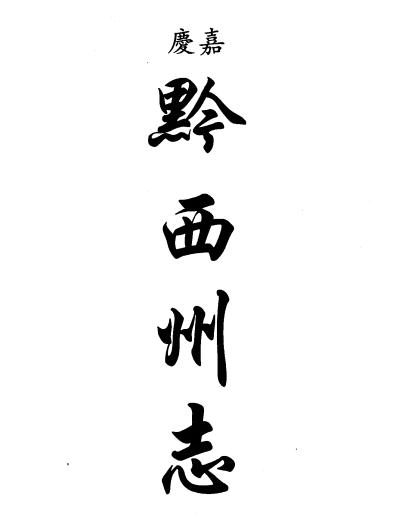 嘉慶
黔西州志